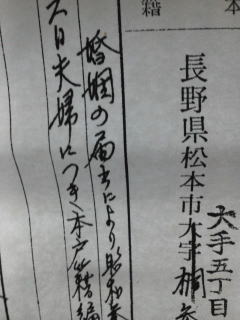 本
籍
大手五丁目
長野県松本市大字桐参
婚姻の届出により昭和参
日夫婦につき本戸籍編